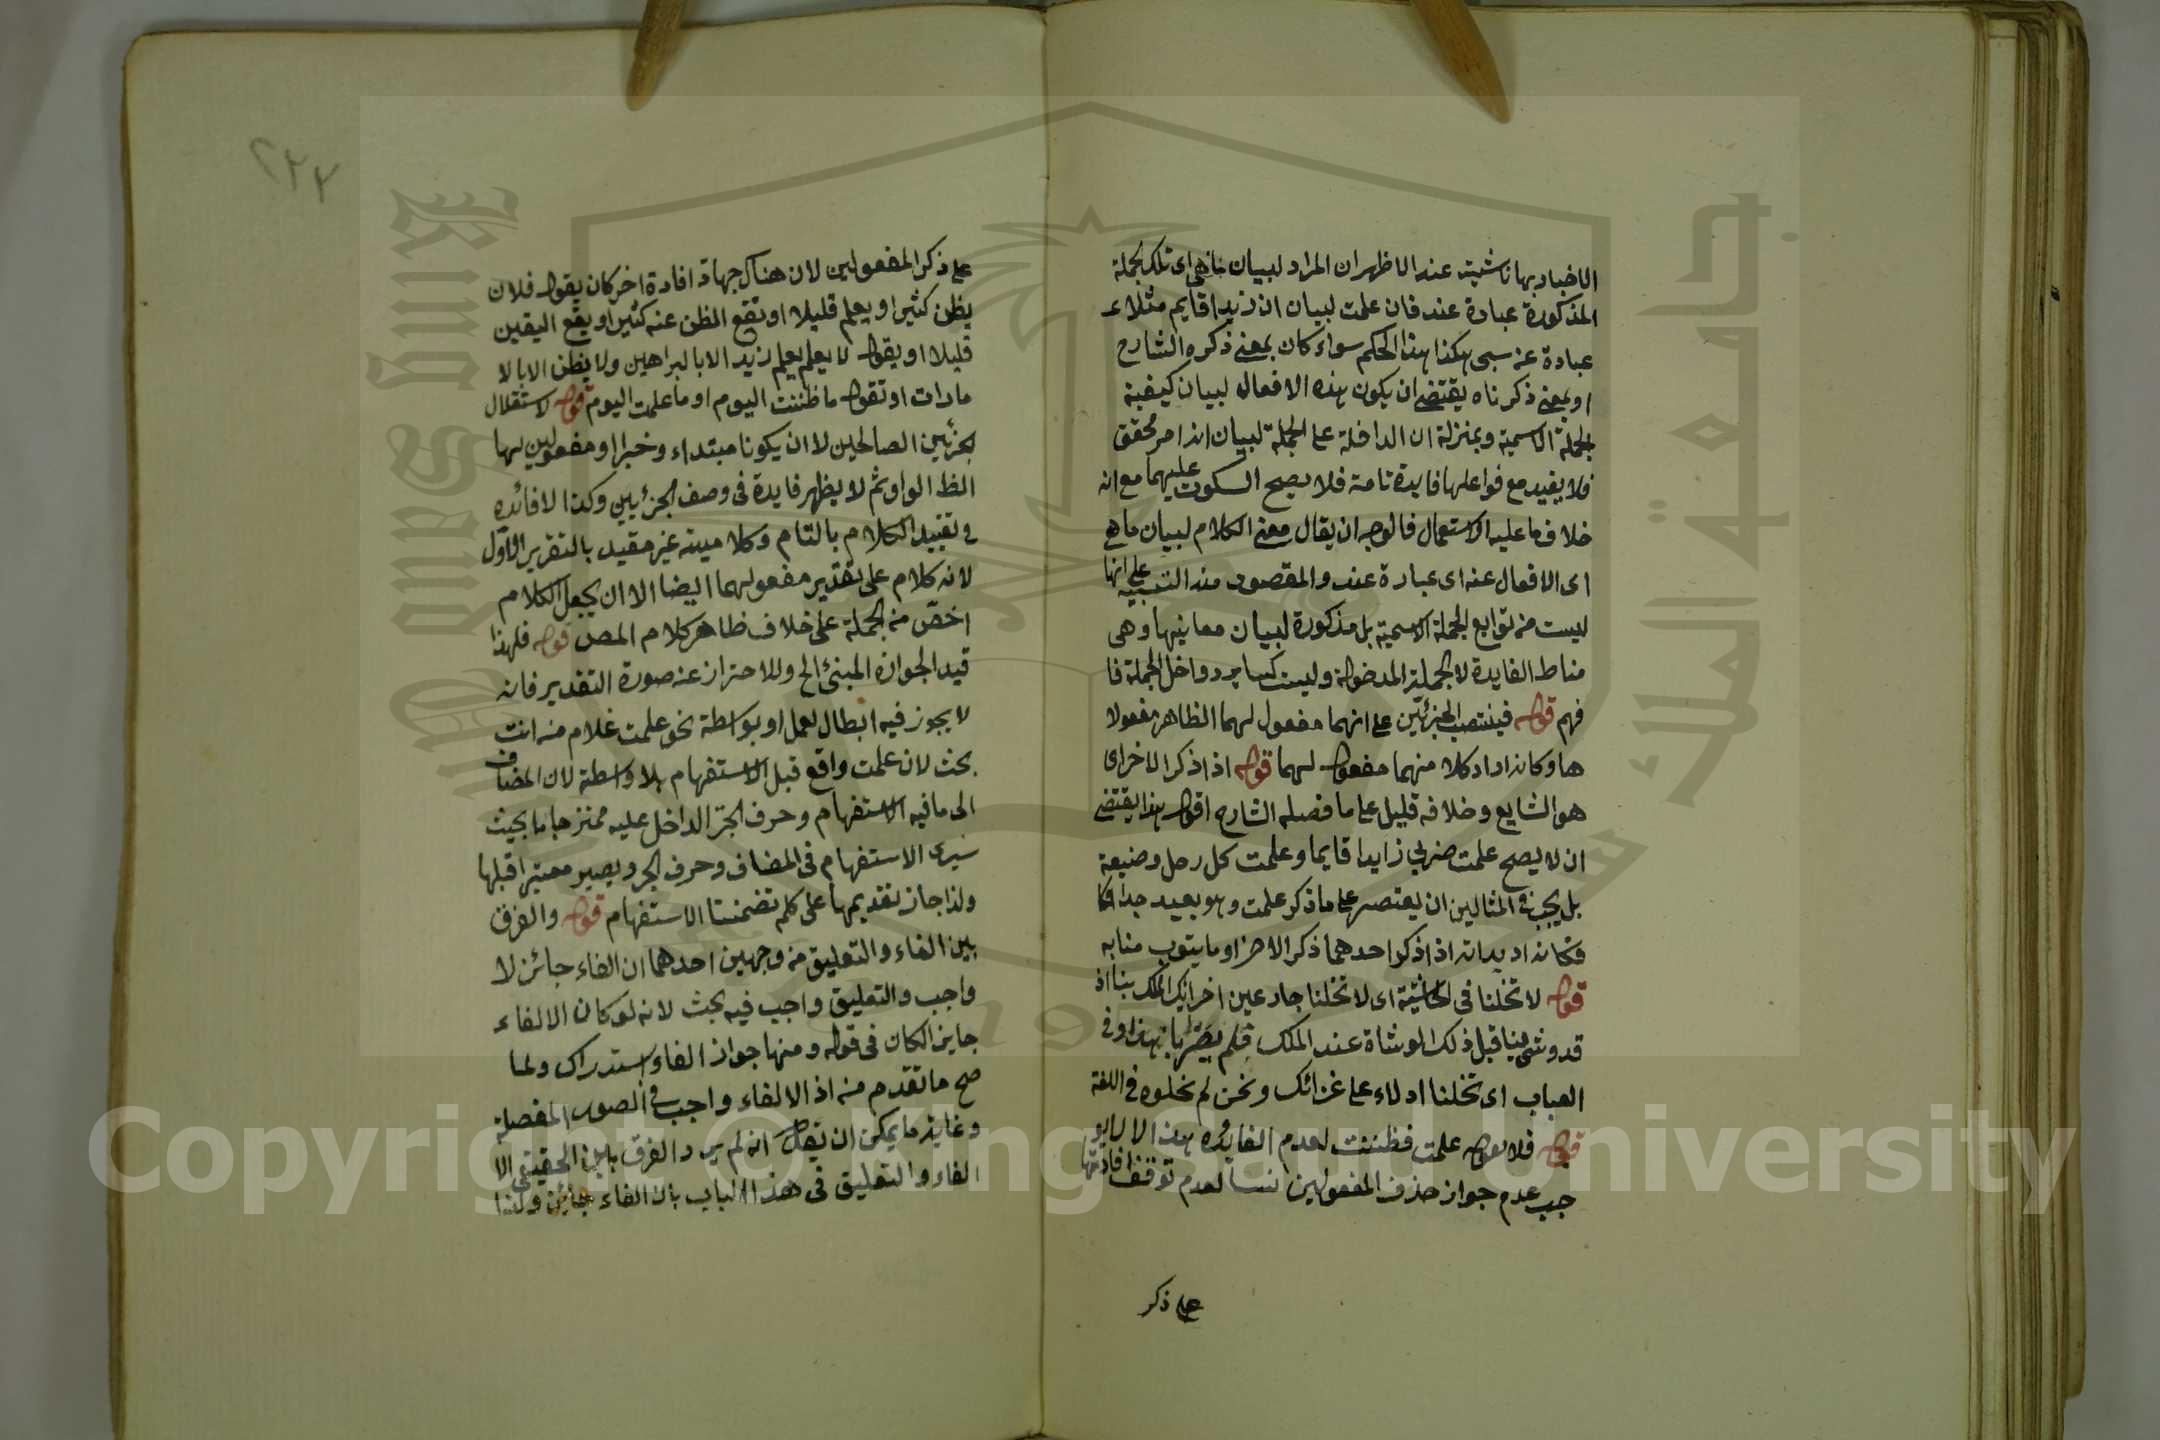 الاخبار بها ناشية عنه الاظهر ان المراد لبيان ما هي اى تلك الجملة
المذكورة عبارة عنه فان علمت لبيان ان زيدا قايم مثلا عـ
عبارة عن سبى هكذا هذا الحكم سواء كان بمعنى ذكره الشارح
او بمعنى ذكرناه يقتضى ان يكون هذه الافعال لبيان كيفية
الجملة الاسمية وبمنزلة ان الداخلة على الجملة لبيان انه امر محقق
فلا يفيد مع فواعلها فايدة تامة فلا يصح السكوت عليهما مع انه
خلاف ما عليه الاستعمال فالوجه ان يقال معنى الكلام لبيان ما هى
اى الافعال عنه اى عبارة عنه والمقصود منه التنبيه على انها
ليست من توابع الجملة الاسمية بل مذكورة لبيان معانيها وهى
مناط الفايدة لا الجملة المدخولة وليست كساير دواخل الجملة فا
فهم قوله فينتصب الجزئين على انهما مفعول لهما الظاهر مفعولا
ها وكانه اراد كلا منهما مفعول لهما قوله اذا ذكر الاخر اى
هو الشايع وخلافه قليل على ما فصله الشارح اقول هذا يقتضى
ان لا يصح علمت ضربي زايدا قايما وعلمت كل رجل وضيعة
بل يجب فى المثالين ان يقتصر على ما ذكر علمت وهو بعيد جدا
فكانه اريد انه اذا ذكر احدهما ذكر الاخر او ما ينوب منابه
قوله لا تخلنا فى الحاشية اى لا تخلنا جازعين اغرائك الملك بنا اذ
قد وشى بنا قبل ذلك الوشاة عند الملك فلم يضر بانه هذا وفى
العباب اى تخلنا ادلاء على غرائك ونحن لم نخلوه فى اللغة
قوله فلا يقول علمت فظننت لعدم الفايدة هذا الا
جب عدم جواز حذف المفعولين نسيا لعدم توقف افادتها
على ذكر
على ذكر المفعولين لان هناك جهات افادة اخر كان يقول فلان
يظن كثيرا ويعلم قليلا او تقع الظن عنه كثيرا ويقع اليقين
قليلا او يقول لا يعلم يعلم زيد الا بالبراهين ولا يظن الا بالا
مارات او تقول ما ظننت اليوم او ما علمت اليوم قوله لاستقلال
الجزئين الصالحين لا ان يكونا مبتداء وخبرا او مفعولين لهما
الظ الواو ثم لا يظهر فايدة فى وصف الجزئيين وكذا لا فائدة
فى تقييد الكلام بالتام وكلاميته غير مقيد بالتقرير الاول
لانه كلام على تقدير مفعولهما ايضا الا ان يجعل الكلام
اخصّ من الجملة على خلاف ظاهر كلام المص قوله فلهذا
قيد الجواز المبنئ الخ وللاحتراز عنه صورة التقدير فانه
لا يجوز فيه ابطال لعمل او بواسطة نحو علمت غلام من انت
بحث لان علمت واقع قبل الاستفهام بلا واسطة لان المضاف
الى ما فيه الاستفهام وحرف الجر الداخل عليه ممتزجا بما بحيث
سرى الاستفهام فى المضاف وحرف الجر ويصير معتبرا قبلها
ولذا جاز تقديمها على كلم تضمنتا الاستفهام قوله والفرق
بين الغاء والتعليق من وجهين احدهما ان الغاء جائز لا
واجب والتعليق واجب فيه بحث لانه لو كان الالغاء
جايز الكان فى قوله ومنها جواز الغاء استدراك ولما
صح ما تقدم منه اذ الالغاء واجب فى الصور المفصلة
وغاية ما يمكن ان يقال انه لم يرد الفرق بين الحقيقى الا
الغاء والتعليق فى هذا الباب بان الغاء جائز ولذا
٢٢٢
Copyright © King Saud University
King Saud University
جامعة الملك سعود
1957